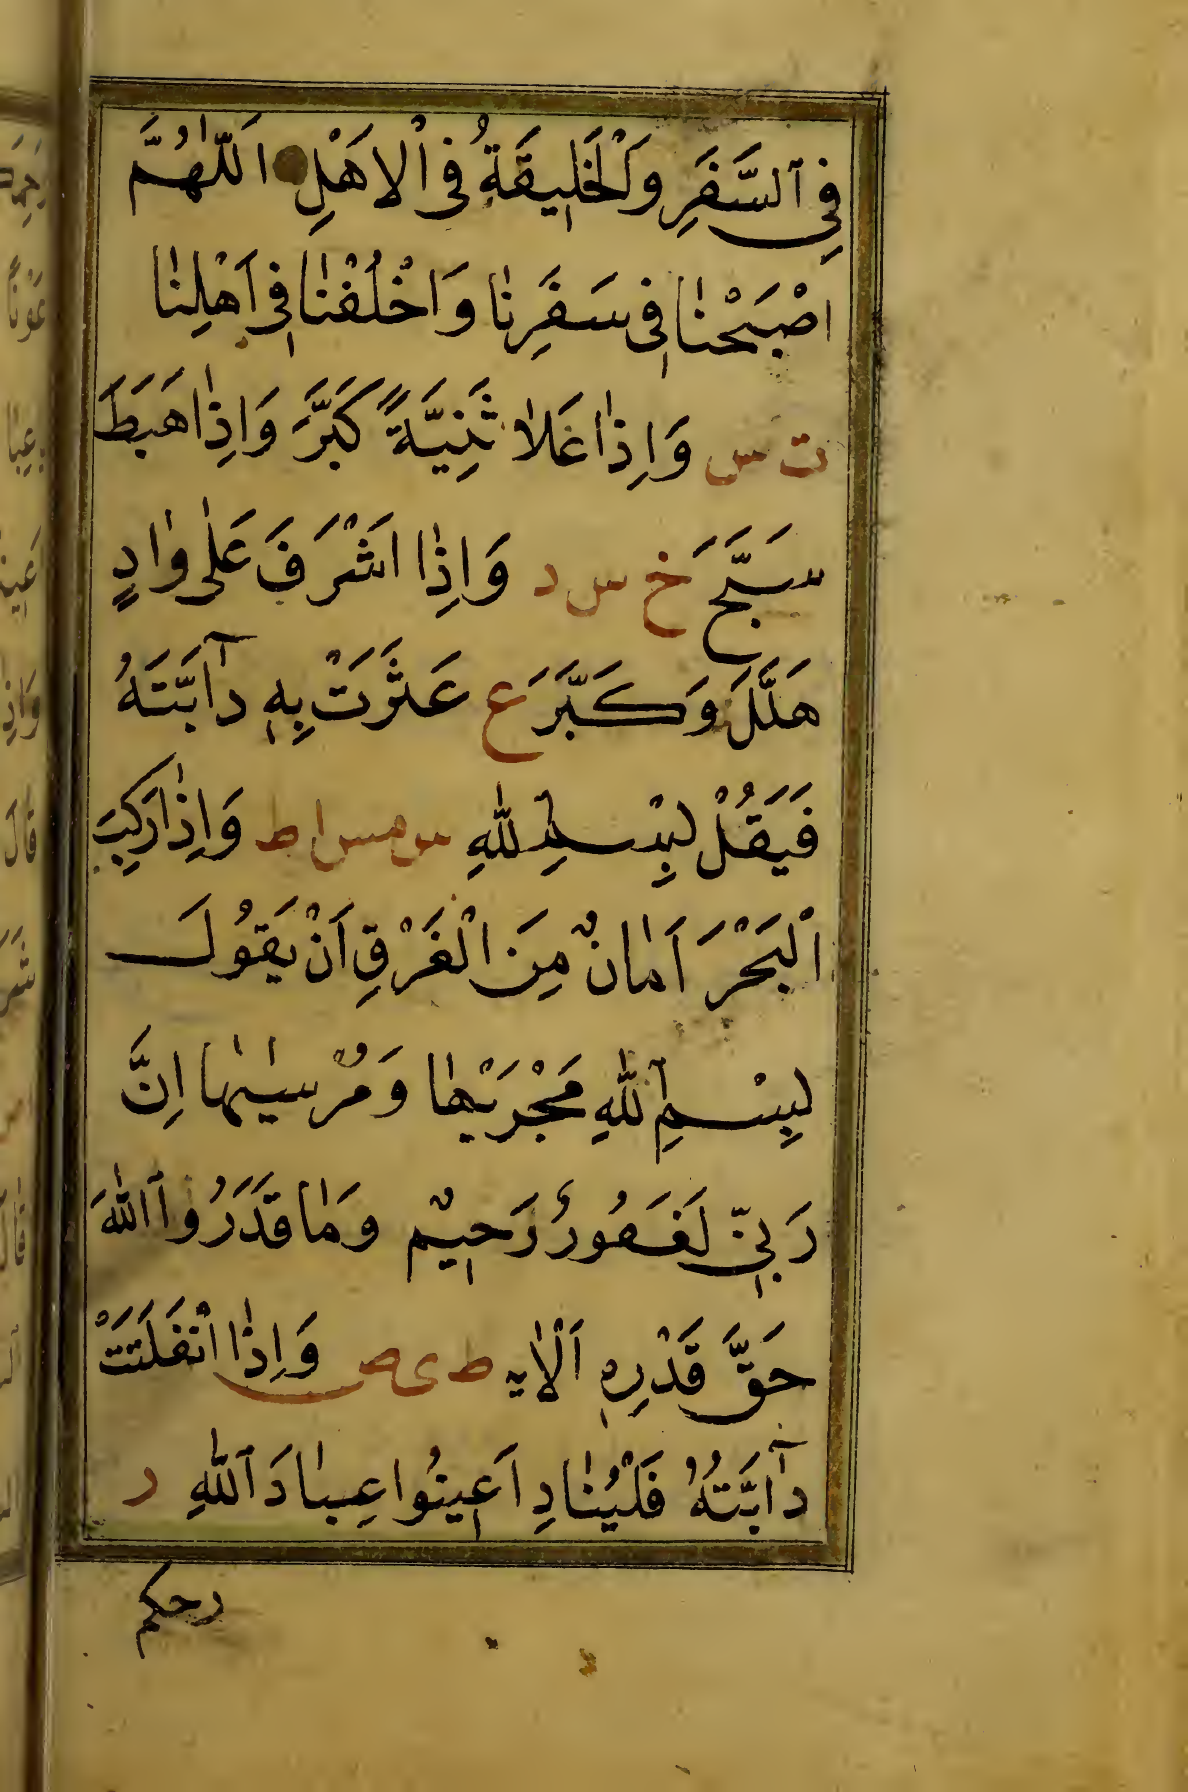 فِي ٱلسَّفَرِ وَلْخَلِيقَةُ فِى ْالاَهْلِ اَللّٰهُمَّ
اصْبَحْنٰا فِى سَفَرِنٰا وَاخْلُفْنٰا فِى اَهْلِنٰا
ت س وَاِذٰا عَلاٰ ثَنِيَّةً كَبَّرَ وَاِذٰا هَبَطَ
سَبَّحَ خ س د وَاِذٰا اَشْرَفَ عَلٰى وٰادٍ
هَلَّلَ وَكَبَّرَ ع عَثَرَتْ بِهٖ دٓابَّتَهُ
فَيَقُلْ لبِسْمِ للّٰهِ س مس ا ط وَاِذٰا رَكِبَ
اْلبَحْرَ اَمٰانٌ مِنَ الْغَرْقِ اَنْ يَقُولَ
لبِسْمِ ٱللّٰهِ مَجْرَىٰهٰا وَمُرْسيٰهٰا اِنَّ
رَبِّى لَغَفُورٌ رَحيٖمٌ وَمٰا قَدَرُوا اللّٰهَ
حَقَّ قَدْرِهٖ اَلْاٰيه ط ى ص وَاِذٰا انْفَلَتَتْ
دٓابَّتُهُ فَلْيُنٰادِ اَعٖينُوا عِبٰادَ ٱللّٰهِ ر
رحكم